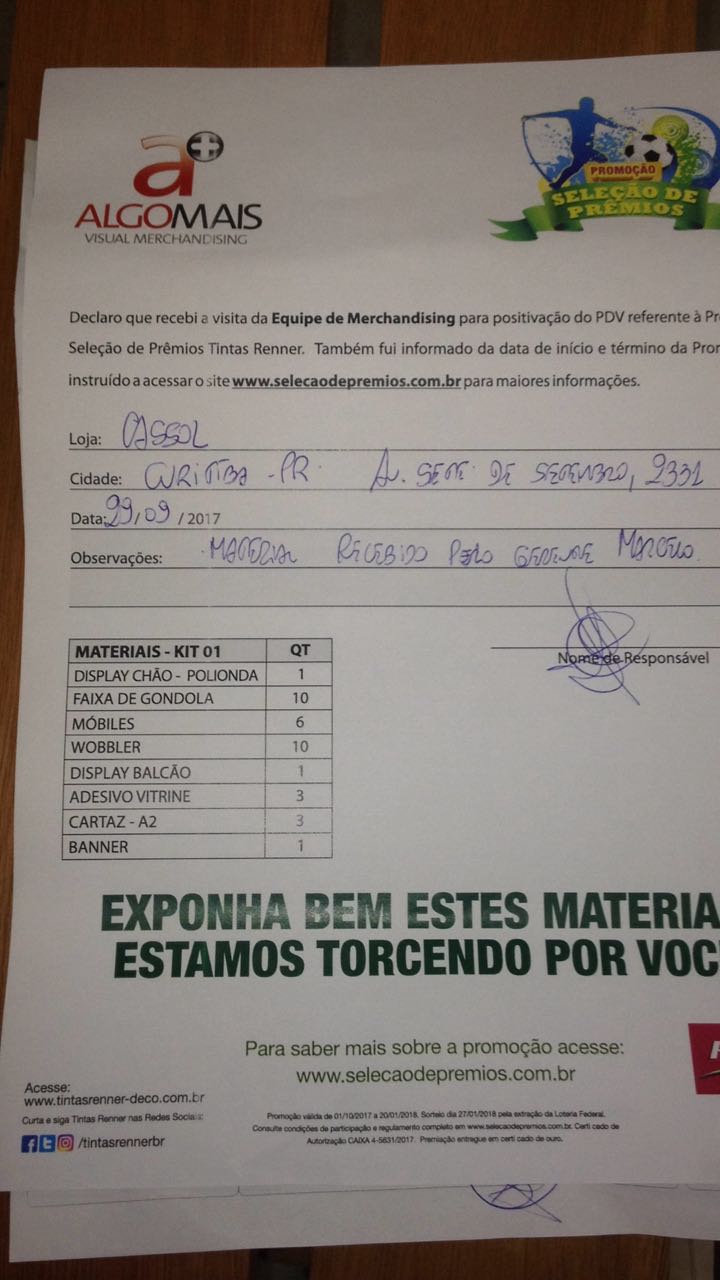 a+
ALGOMAIS
VISUAL MERCHANDISING
PROMOÇÃO
SELEÇÃO DE
PRÊMIOS
Declaro que recebi a visita da Equipe de Merchandising para positivação do PDV referente à Pr
Seleção de Prêmios Tintas Renner. Também fui informado da data de início e término da Pror
instruído a acessar o site www.selecaodepremios.com.br para maiores informações.
Loja: CASSOL
Cidade: CURITIBA - PR AV. SETE DE SETEMBRO, 2331
Data: 29/09/2017
Observações: MATERIAL RECEBIDO PELO GERENTE MARCELO.
Nome de Responsável
MATERIAIS - KIT 01 QT
DISPLAY CHÃO - POLIONDA 1
FAIXA DE GONDOLA 10
MÓBILES 6
WOBBLER 10
DISPLAY BALCÃO 1
ADESIVO VITRINE 3
CARTAZ - A2 3
BANNER 1
EXPONHA BEM ESTES MATERIA
ESTAMOS TORCENDO POR VOC
Para saber mais sobre a promoção acesse:
www.selecaodepremios.com.br
Acesse:
www.tintasrenner-deco.com.br
Curta e siga Tintas Renner nas Redes Sociais:
/tintasrennerbr
Promoção válida de 01/10/2017 a 20/01/2018. Sorteio dia 27/01/2018 pela extração da Loteria Federal.
Consulte condições de participação e regulamento completo em www.selecaodepremios.com.br. Certi cado de
Autorização CAIXA 4-5831/2017. Premiação entregue em certi cado de ouro.